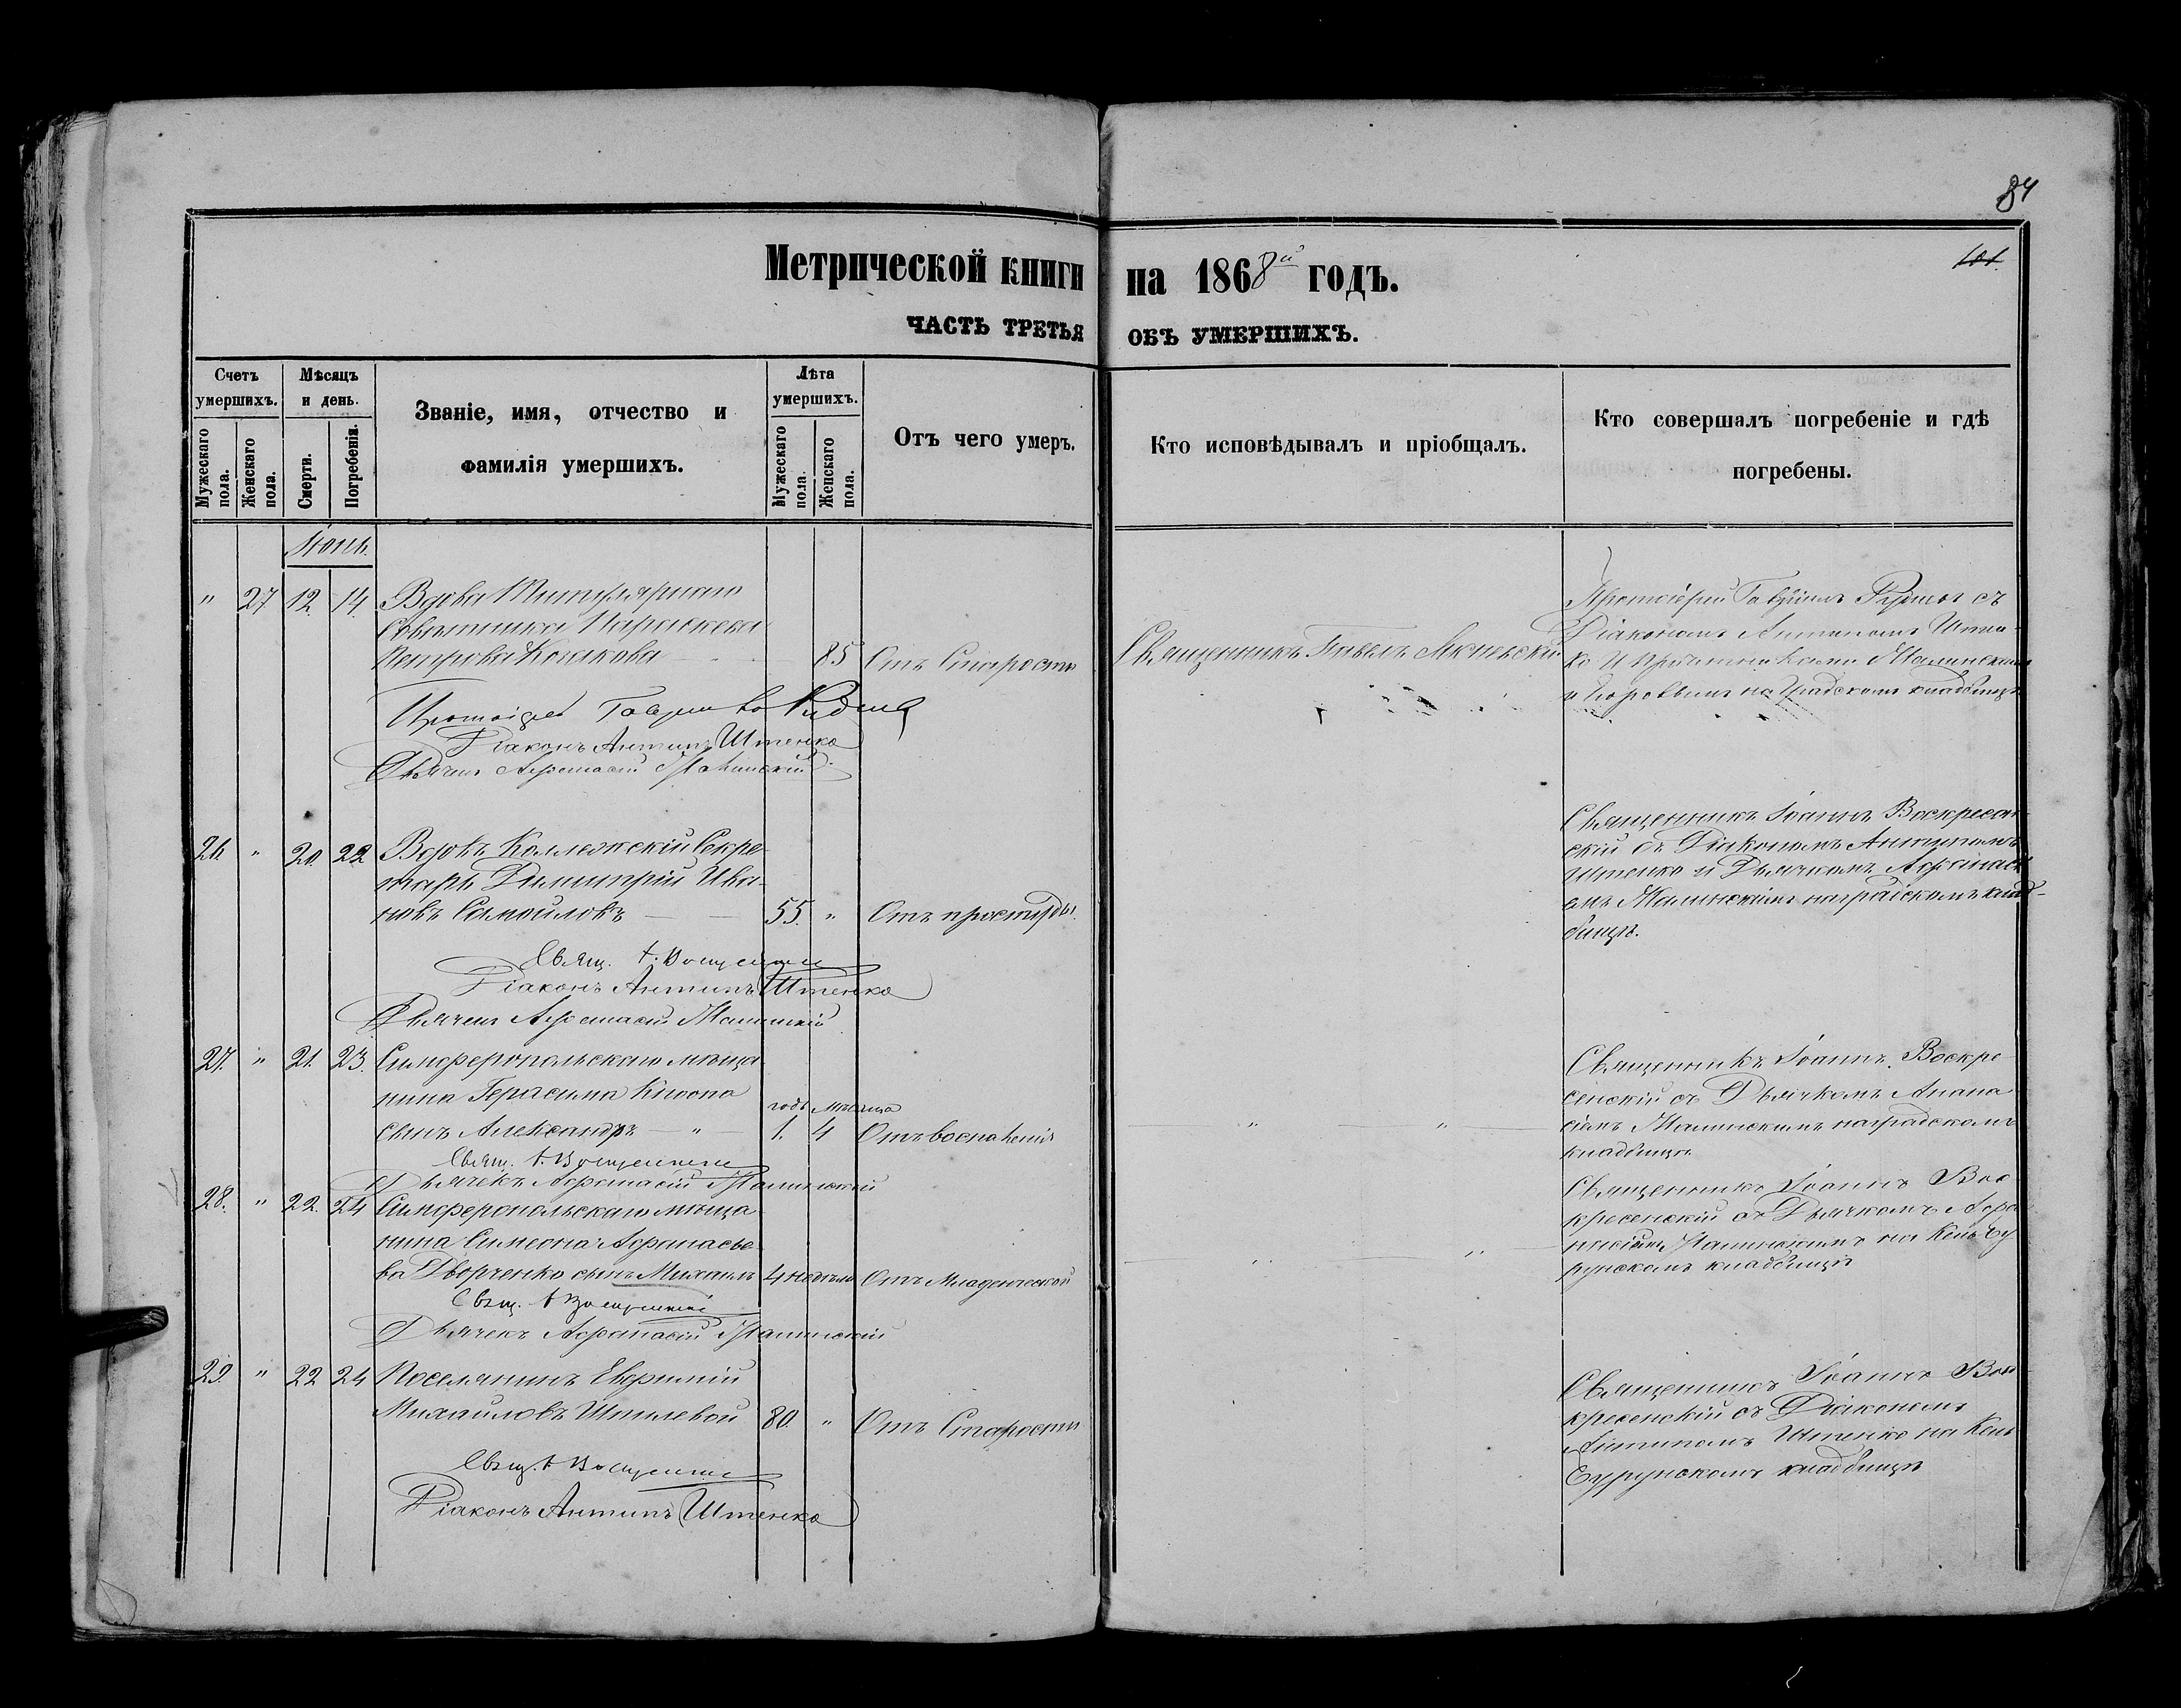 84
101.
Метрической книги на 1868й годъ.
ЧАСТЬ ТРЕТЬЯ ОБЪ УМЕРШИХЪ.
Счетъ умершихъ.
Мужескаго пола.
Женскаго пола.
Мѣсяцъ и день.
Смерти.
Погребенія.
Званіе, имя, отчество и
фамилія умершихъ.
Лѣта умершихъ.
Мужескаго пола.
Женскаго пола.
Отъ чего умеръ.
Кто исповѣдывалъ и пріобщалъ.
Кто совершалъ погребеніе и гдѣ
погребены.
Іюнь.
" 27 12. 14. Вдова Титулярнаго
Совѣтника Параскева
Петрова 85 Отъ Старости
Священникъ Павелъ
Протоіерей Гавріилъ съ
Діакономъ Антипомъ Штен-
ко и Малинскимъ
и на Градскомъ кладбищѣ
Протоіерей
Діаконъ Антипъ Штенко
Дьячекъ Афанасій Малинскій
26. " 20. 22 Вдовъ Коллежскій Секре-
тарь Димитрій Ива-
новъ Самойловъ 55. " Отъ простуды.
Священникъ Іоаннъ Воскресен-
скій съ Діакономъ Антипомъ
Штенко и Дьячкомъ Афанасі-
емъ Малинскимъ на градскомъ клад-
бищѣ.
Свящ. І. Воскресенскій
Діаконъ Антипъ Штенко
Дьячекъ Афанасій Малинскій
27. " 21. 23. Симферопольскаго мѣща-
нина Герасима
сынъ Александръ — " —
годъ мѣсяца
1. 4 Отъ воспаленія
" "
Священникъ Іоаннъ Воскре-
сенскій съ Дьячкомъ Афана-
сіемъ Малинскимъ на градскомъ
кладбищѣ
Свящ. І. Воскресенскій
Дьячекъ Афанасій Малинскій
28. " 22. 24 Симферопольскаго мѣща-
нина Симеона Афанасье-
ва Дворченко сынъ Михаилъ 4 недѣли Отъ Младенческой
" "
Священникъ Іоаннъ Вос-
кресенскій съ Дьячкомъ Афа-
насіемъ Малинскимъ на Кень Еу-
рунскомъ кладбищѣ
Свящ. І. Воскресенскій
Дьячекъ Афанасій Малинскій
29. " 22 24 Поселянинъ Евфимій
Михайловъ 80. " Отъ Старости
Священникъ Іоаннъ Вос-
кресенскій съ Діакономъ
Антипомъ Штенко на Кень
Еурунскомъ кладбищѣ
Свящ. І. Воскресенскій
Діаконъ Антипъ Штенко